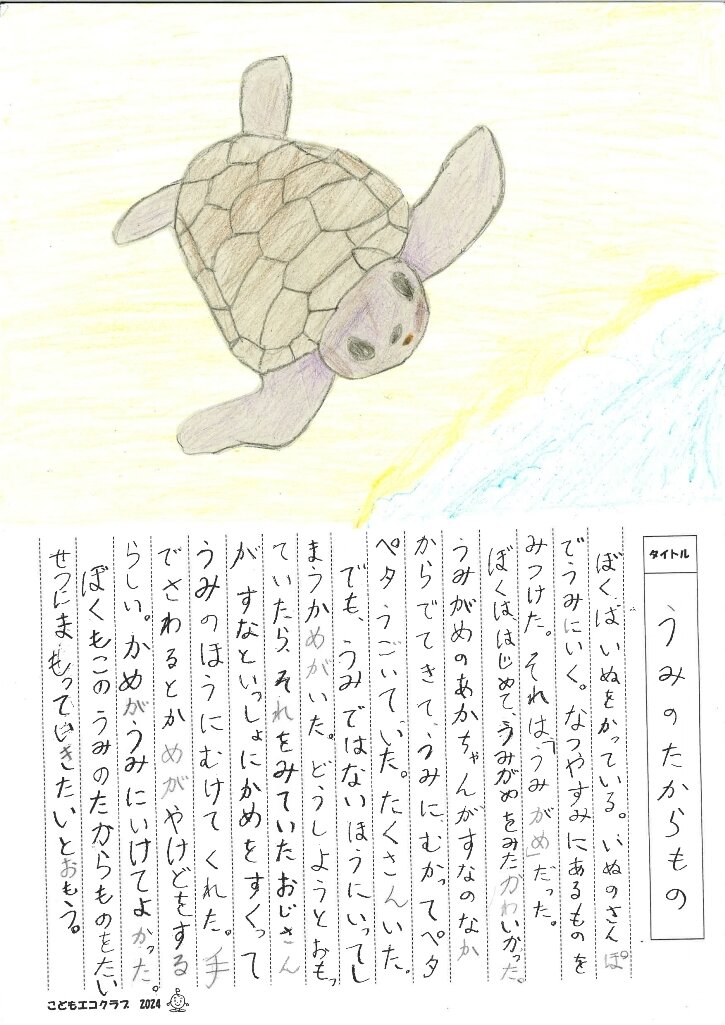 タイトル
うみのたからもの
ぼくはいぬをかっている。いぬのさんぽ
でうみにいく。なつやすみにあるものを
みつけた。それは「うみがめ」だった。
ぼくははじめて、うみがめをみたかわいかった。
うみがめのあかちゃんがすなのなか
からでてきて、うみにむかってペタ
ペタうごいていた。たくさんいた。
でも、うみではないほうにいってし
まうかめがいた。どうしようとおもっ
ていたら、それをみていたおじさん
がすなといっしょにかめをすくって
うみのほうにむけてくれた。手
でさわるとかめがやけどをする
らしい。かめがうみにいけてよかった。
ぼくもこのうみのたからものをたい
せつにまもっていきたいとおもう。
こどもエコクラブ 2024